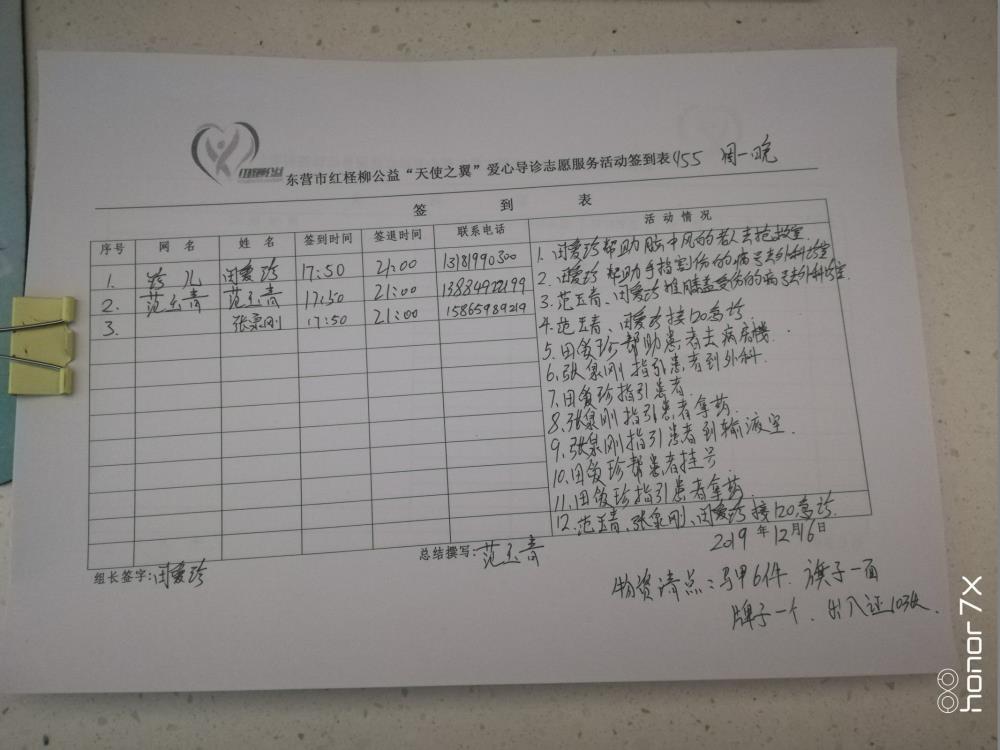 东营市红柽柳公益“天使之翼”爱心导诊志愿服务活动签到表 455 周一晚
签 到 表
序号 网 名 姓 名 签到时间 签退时间 联系电话 活 动 情 况
1. 珍儿 闵爱珍 17:50 21:00 13181990300
2. 范玉青 范玉青 17:50 21:00
3. 张泉刚 17:50 21:00 15865989219
1. 闵爱珍帮助脑中风的老人去抢救室.
2. 闵爱珍 帮助手指割伤的病号去外科诊室
3. 范玉青、闵爱珍推膝盖受伤的病号去外科诊室.
4. 范玉青、闵爱珍接120急诊
5. 闵爱珍帮助患者去病房楼.
6. 张泉刚指引患者到外科.
7. 闵爱珍指引患者
8. 张泉刚指引患者拿药.
9. 张泉刚指引患者到输液室.
10. 闵爱珍帮患者挂号
11. 闵爱珍指引患者拿药
12. 范玉青、张泉刚、闵爱珍接120急诊.
2019年12月16日
组长签字:闵爱珍
总结撰写:范玉青
物资清点:马甲6件. 旗子一面
牌子一个. 出入证10张.
honor 7X